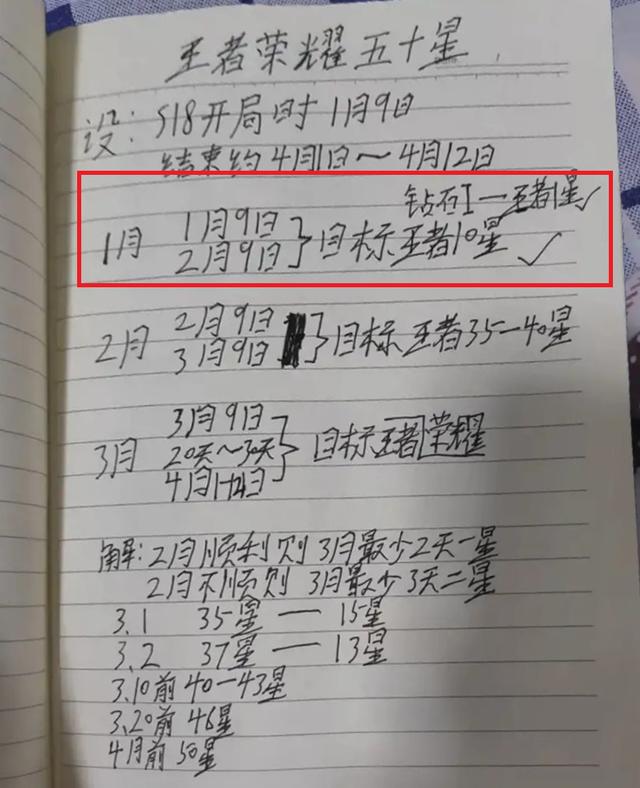 王者荣耀五十星
设: S18开局时 1月9日
结束约4月1日~4月12日
钻石I一王者1星✓
1月 1月9日
2月9日 } 目标王者10星 ✓
2月 2月9日
3月9日 } 目标王者35一40星
3月 3月9日
20天~30天 } 目标王者荣耀
4月1-12日
解: 2月顺利则 3月最少2天一星
2月不顺则 3月最少3天二星
3.1 35星 — 15星
3.2 37星 — 13星
3.10前 40一43星
3.20前 46星
4月前 50星